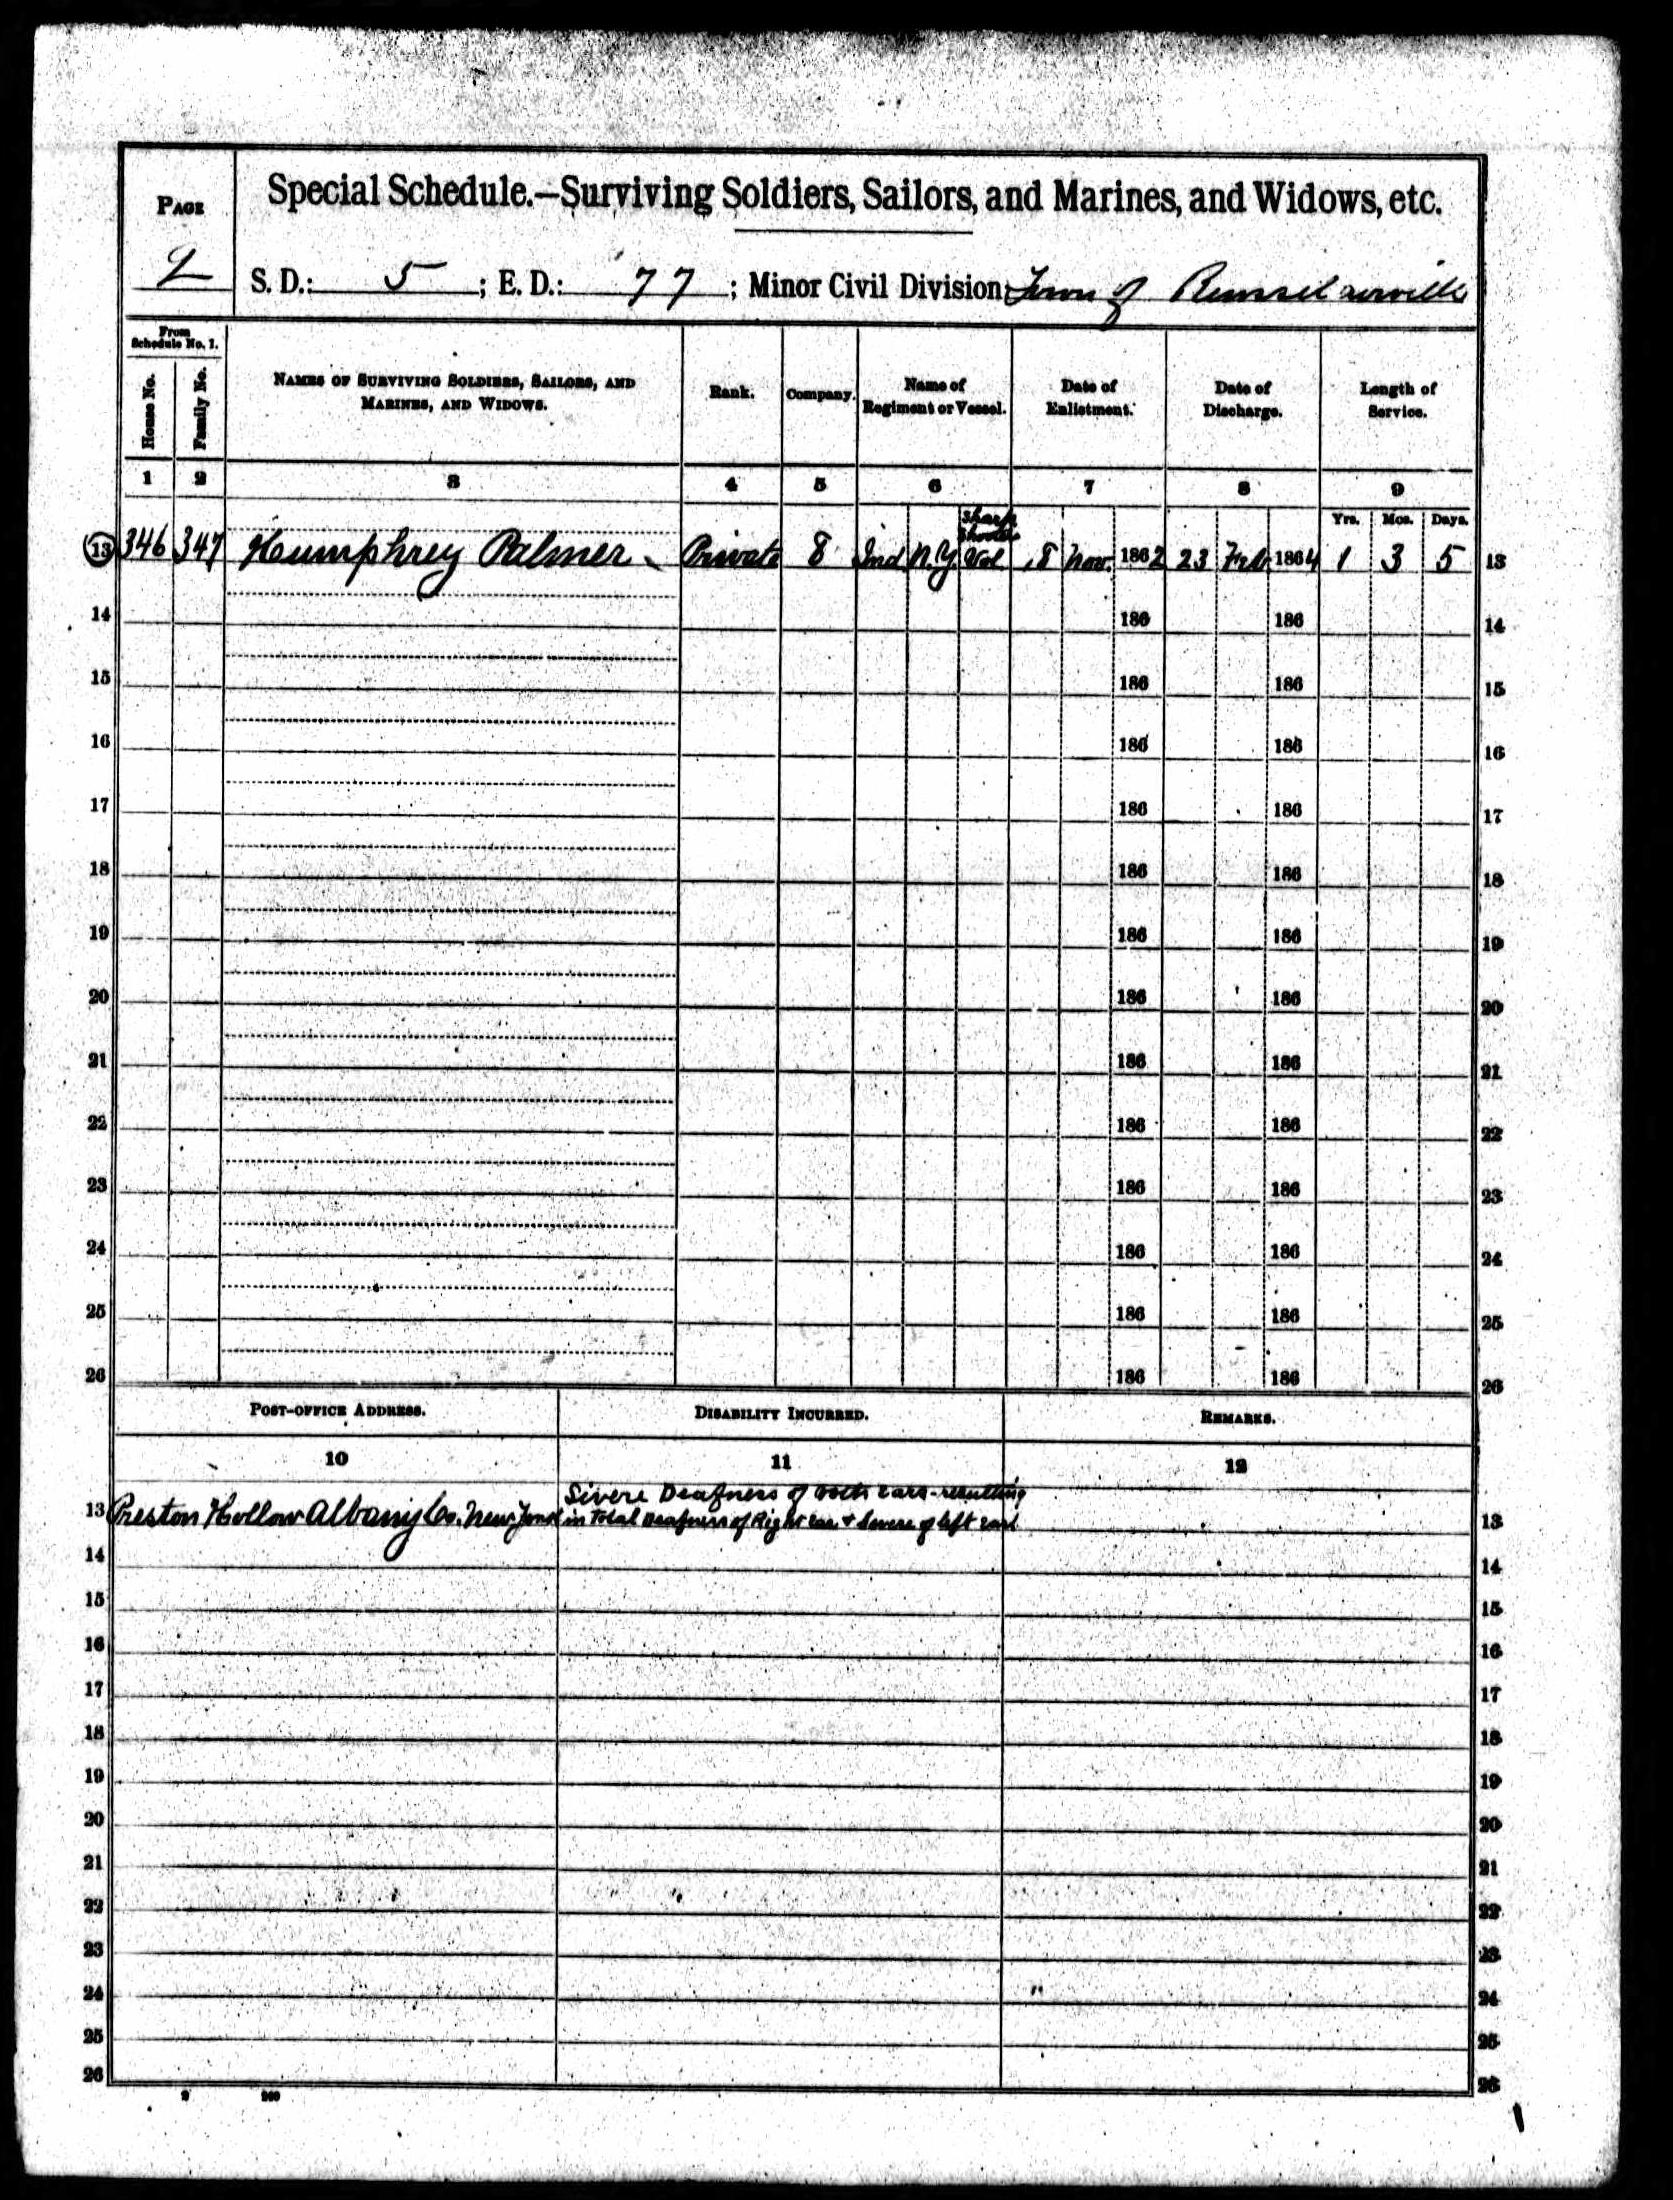 PAGE
2
Special Schedule.—Surviving Soldiers, Sailors, and Marines, and Widows, etc.
S. D.: 5 ; E. D.: 77 ; Minor Civil Division: Town of Rensselaerville
From Schedule No. 1.
House No.
Family No.
NAMES OF SURVIVING SOLDIERS, SAILORS, AND
MARINES, AND WIDOWS.
Rank.
Company.
Name of
Regiment or Vessel.
Date of
Enlistment.
Date of
Discharge.
Length of
Service.
1 2 3 4 5 6 7 8 9
Yrs. Mos. Days.
Sharp
Shooters
13 346 347 Humphrey Palmer Private 8 Ind N.Y. Vol 18 Nov. 1862 23 Feb 1864 1 3 5 13
14 186 186 14
15 186 186 15
16 186 186 16
17 186 186 17
18 186 186 18
19 186 186 19
20 186 186 20
21 186 186 21
22 186 186 22
23 186 186 23
24 186 186 24
25 186 186 25
26 186 186 26
POST-OFFICE ADDRESS. DISABILITY INCURRED. REMARKS.
10 11 12
Severe Deafness of both ears-resulting
13 Preston Hollow Albany Co. New York in Total Deafness of Right ear & Severe of left ear 13
14 14
15 15
16 16
17 17
18 18
19 19
20 20
21 21
22 22
23 23
24 24
25 25
26 26